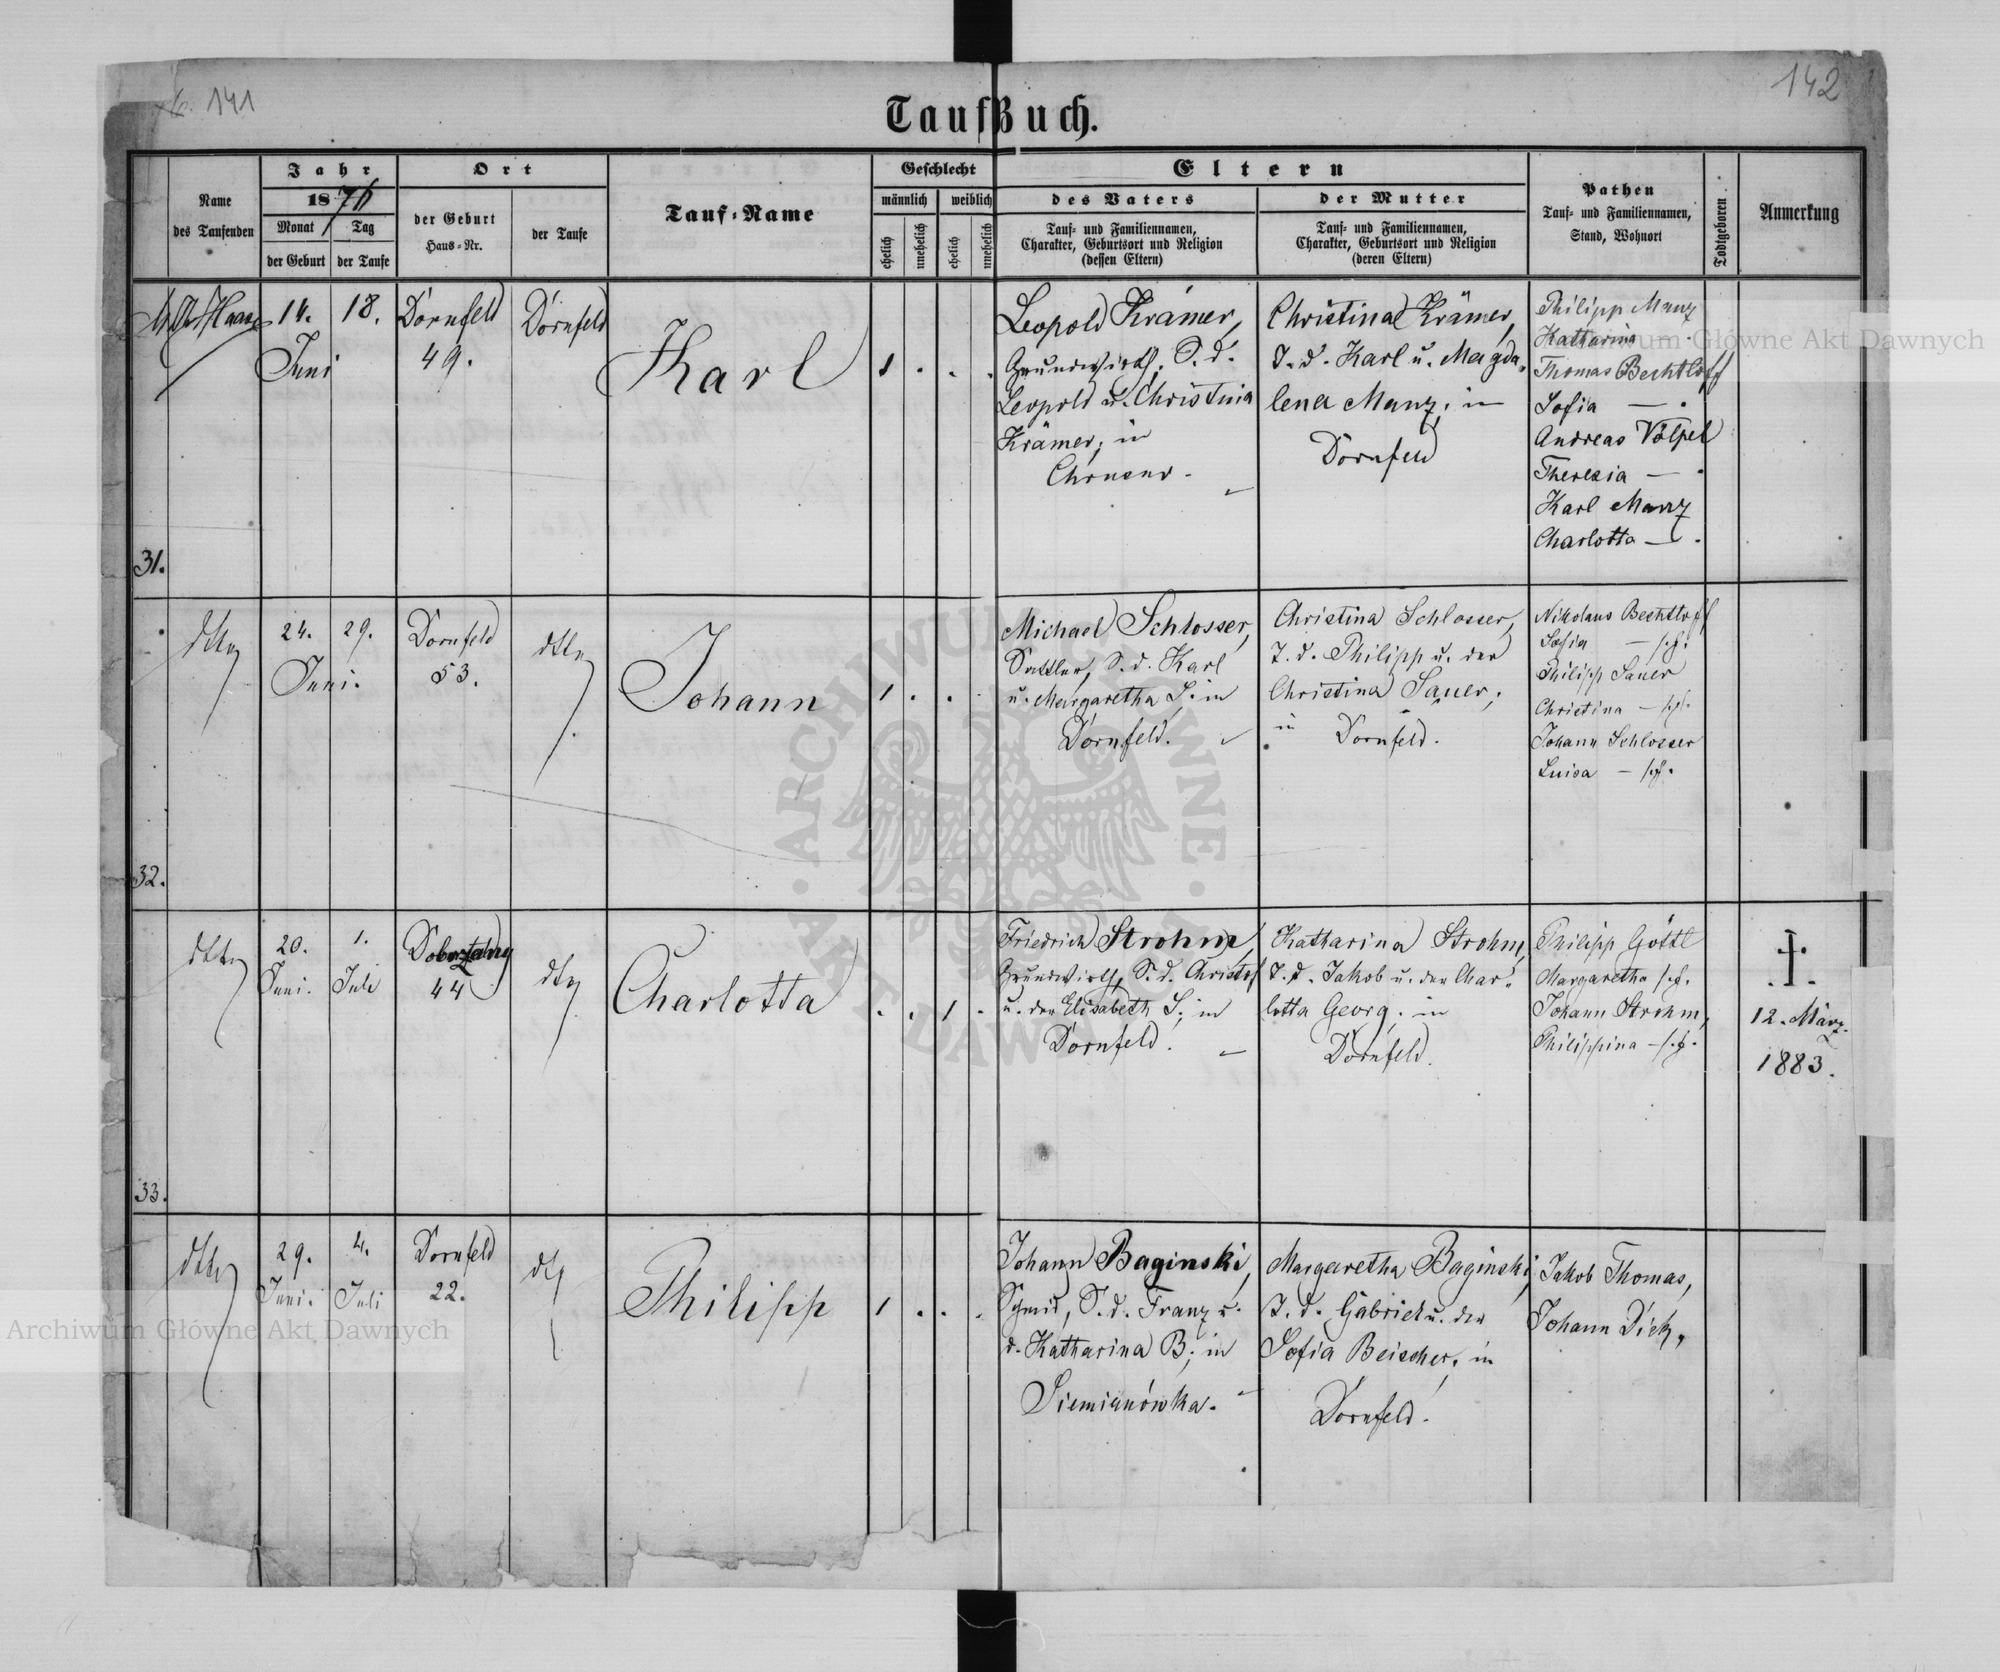 141
142
Taufbuch.
Name
des Taufenden
Jahr
1876
Monat
Tag
der Geburt
der Taufe
Ort
der Geburt
Haus-Nr.
der Taufe
Tauf-Name
Geschlecht
männlich
weiblich
ehelich
unehelich
ehelich
unehelich
Eltern
des Vaters
Tauf- und Familiennamen,
Charakter, Geburtsort und Religion
(dessen Eltern)
der Mutter
Tauf- und Familiennamen,
Charakter, Geburtsort und Religion
(deren Eltern)
Pathen
Tauf- und Familiennamen,
Stand, Wohnort
Todtgeboren
Anmerkung
31.
Haase
14.
Juni
18.
Dornfeld
49.
Dornfeld
Karl
1 . . .
Leopold Krämer,
Grundwirth, S. d.
Leopold u. Christina
Krämer, in
Chrusno.
Christina Krämer,
T. d. Karl u. Magda-
lena Manz, in
Dornfeld
Philipp Manz
Katharina
Thomas Bechtloff
Sofia — .
Andreas Völpel
Theresia — .
Karl Manz
Charlotta — .
32.
dtto
24.
Juni.
29.
Dornfeld
53.
dtto
Johann
1 . . .
Michael Schlosser,
Sattler, S. d. Karl
u. Margaretha S. in
Dornfeld.
Christina Schlosser,
T. d. Philipp u. der
Christina Sauer,
in Dornfeld.
Nikolaus Bechtloff
Sofia —
Philipp Sauer
Christina —
Johann Schlosser
Luisa —
33.
dtto
20.
Juni.
1.
Juli
44
dto
Charlotta
. . 1 .
Friedrich Strohm,
Grundwirth, S. d. Christof
u. der Elisabeth S., in
Dornfeld.
Katharina Strohm,
T. d. Jakob u. der Char-
lotta Georg. in
Dornfeld.
Philipp Göttl
Margaretha
Johann Strohm,
Philippina —
12. März
1883.
dtto
29.
Juni.
4.
Juli
Dornfeld
22.
dto
Philipp
1 . . .
Johann Baginski,
Schmid, S. d. Franz u.
d. Katharina B., in
Siemianówka.
Margaretha Baginski,
T. d. Gabriel u. der
Sofia Beischer, in
Dornfeld.
Jakob Thomas,
Johann Dick,
Archiwum Główne Akt Dawnych
Archiwum Główne Akt Dawnych
ARCHIWUM GŁÓWNE AKT DAWNYCH